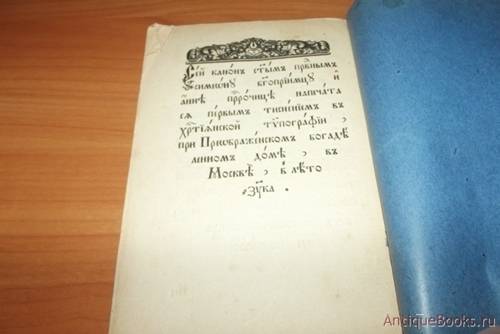 Сі́й кано́нъ ст҃ы́мъ пра́внымъ
Семиѡ́ну бг҃опрїи́мцу и҆
а҆́ннѣ прⷪ҇ро́чицѣ напеча́та
сѧ пе́рвымъ тисне́нїемъ въ
Хрⷭ҇тїа́нской тѵпогра́фїи ,
при Преѡбраже́нскомъ богадѣ́
ленномъ до́мѣ , въ
Москвѣ̀ , в̾ лѣ́то
҂зу҃ка .
AntiqueBooks.ru